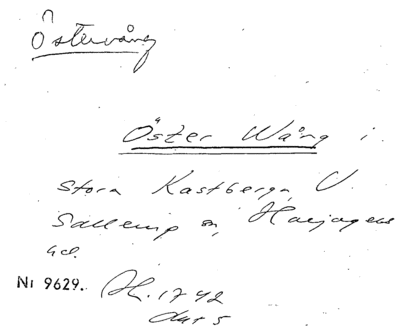 Östervång
Öster Wång i
Stora Kastberga, V.
Sallerup sn, Harjagers
hd.
NI 9629. Jb. 1742